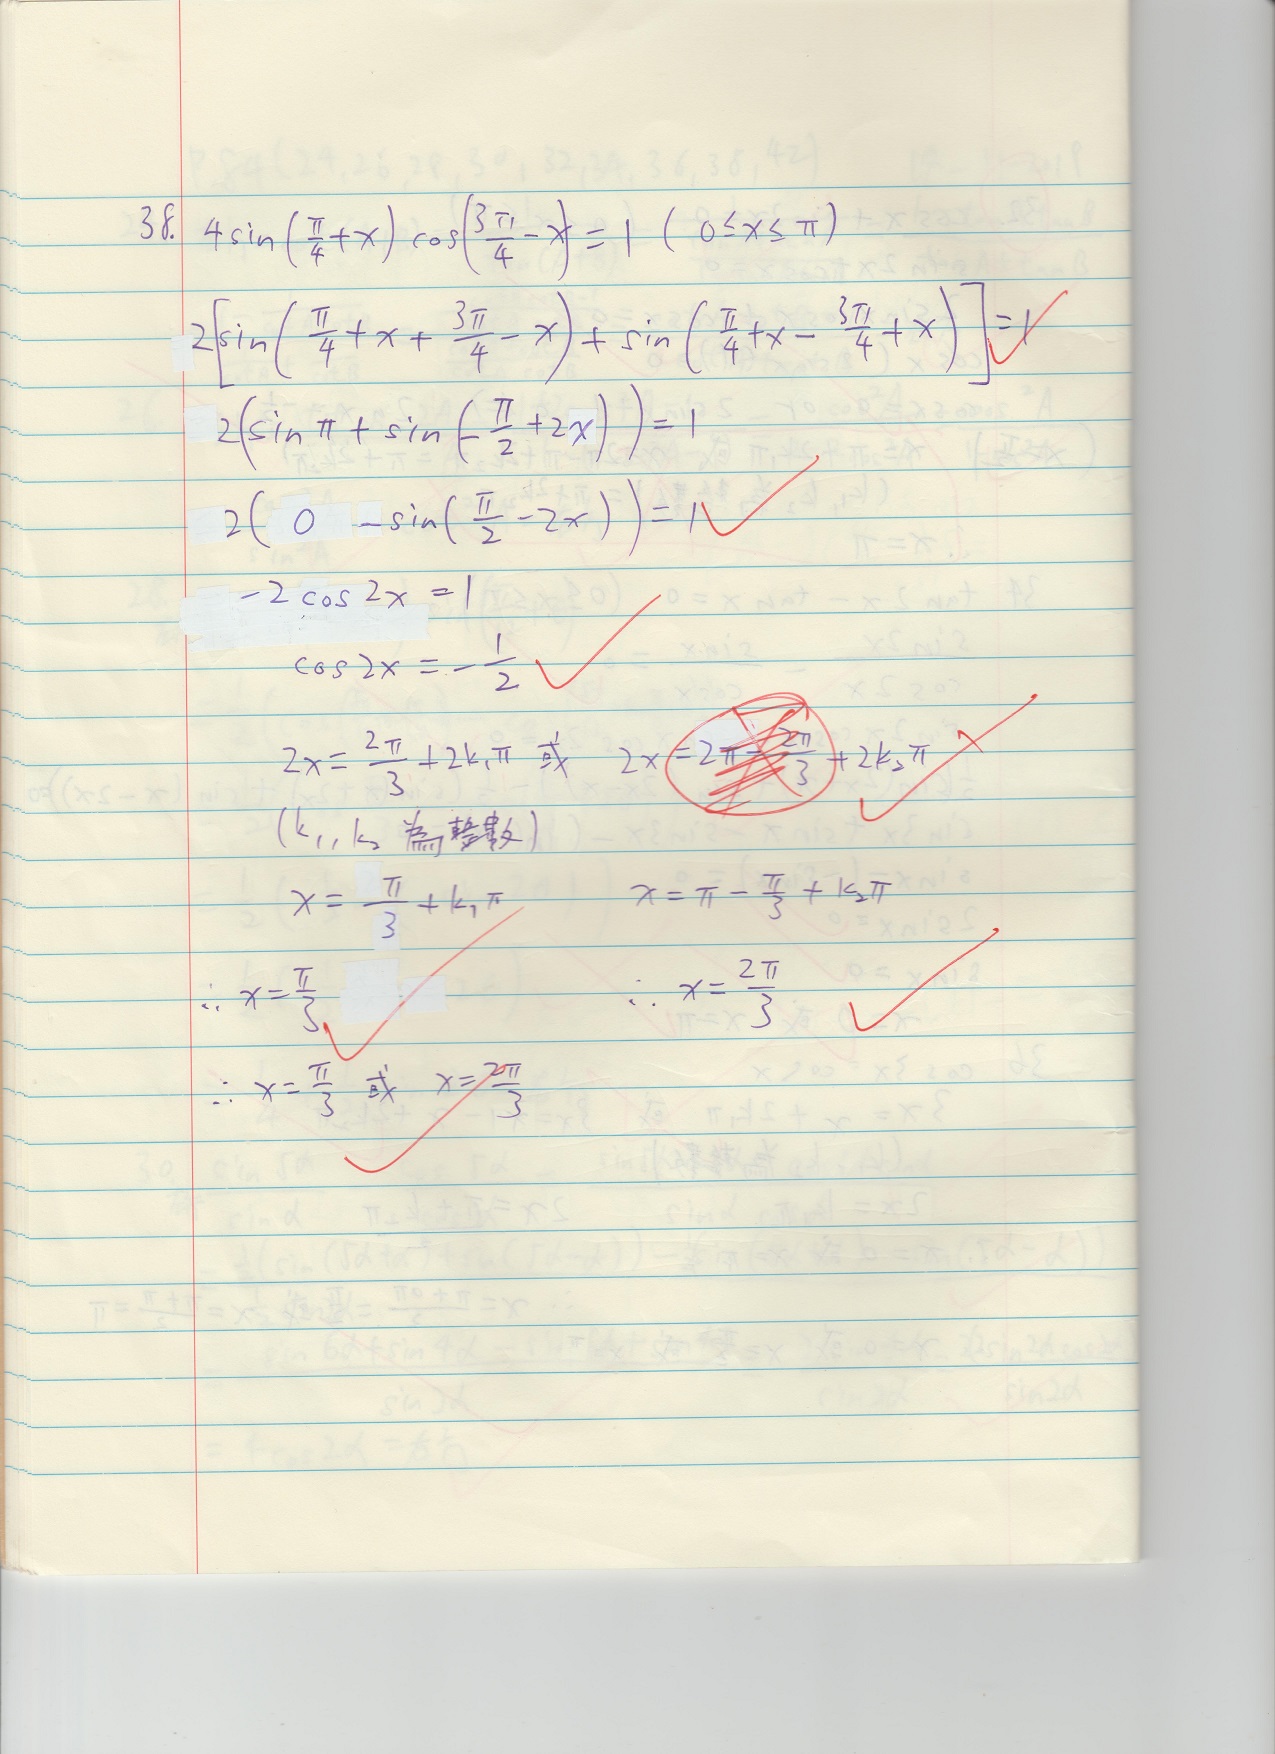 38. 4sin(π/4+x) cos(3π/4-x)=1 (0≤x≤π)
2[sin(π/4+x+3π/4-x)+sin(π/4+x-3π/4+x)]=1
2(sinπ+sin(-π/2+2x))=1
2(0-sin(π/2-2x))=1
-2cos2x=1
cos2x=-1/2
2x=2π/3+2k₁π 或 2x=2π-2π/3+2k₂π
(k₁,k₂為整數)
x=π/3+k₁π x=π-π/3+k₂π
∴x=π/3 ∴x=2π/3
∴x=π/3 或 x=2π/3